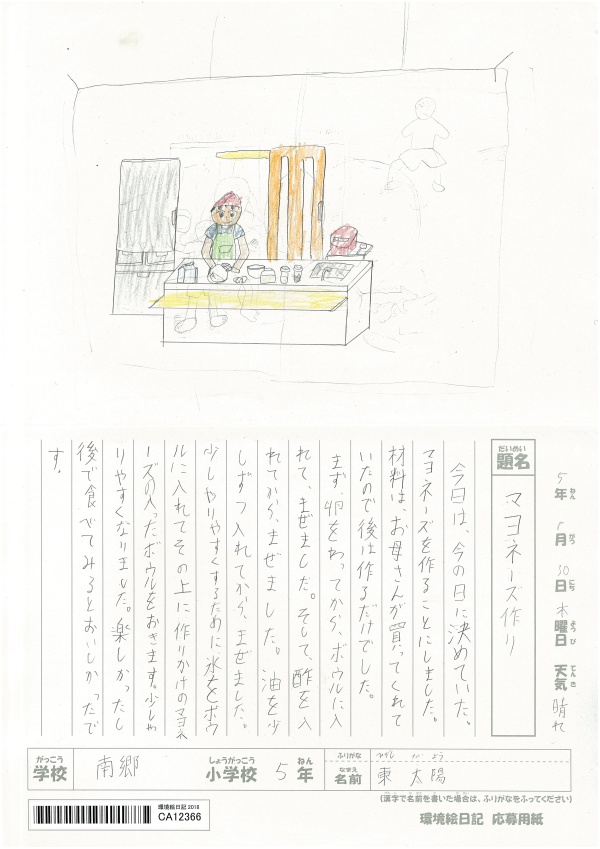 5年 月30日木曜日 天気 晴れ
ねん がつ にち ようび てんき
だいめい
題名 マヨネーズ作り
今日は、今の日に決めていた、
マヨネーズを作ることにしました。
材料は、お母さんが買ってくれて
いたので後は作るだけでした。
まず、卵をわってから、ボウルに入
れて、まぜました。そして、酢を入
れてから、まぜました。油を少
しずつ入れてから、まぜました。
少しやりやすくするために氷をボウ
ルに入れてその上に作りかけのマヨネ
ーズの入ったボウルをおきます。少しや
りやすくなりました。楽しかったし
後で食べてみるとおいしかったで
す。
がっこう しょうがっこう ねん
学校 南郷 小学校 5年
ふりがな ひがし たいよう
なまえ
名前 東 太陽
(漢字で名前を書いた場合は、ふりがなをふってください)
環境絵日記 2018
CA12366
環境絵日記 応募用紙